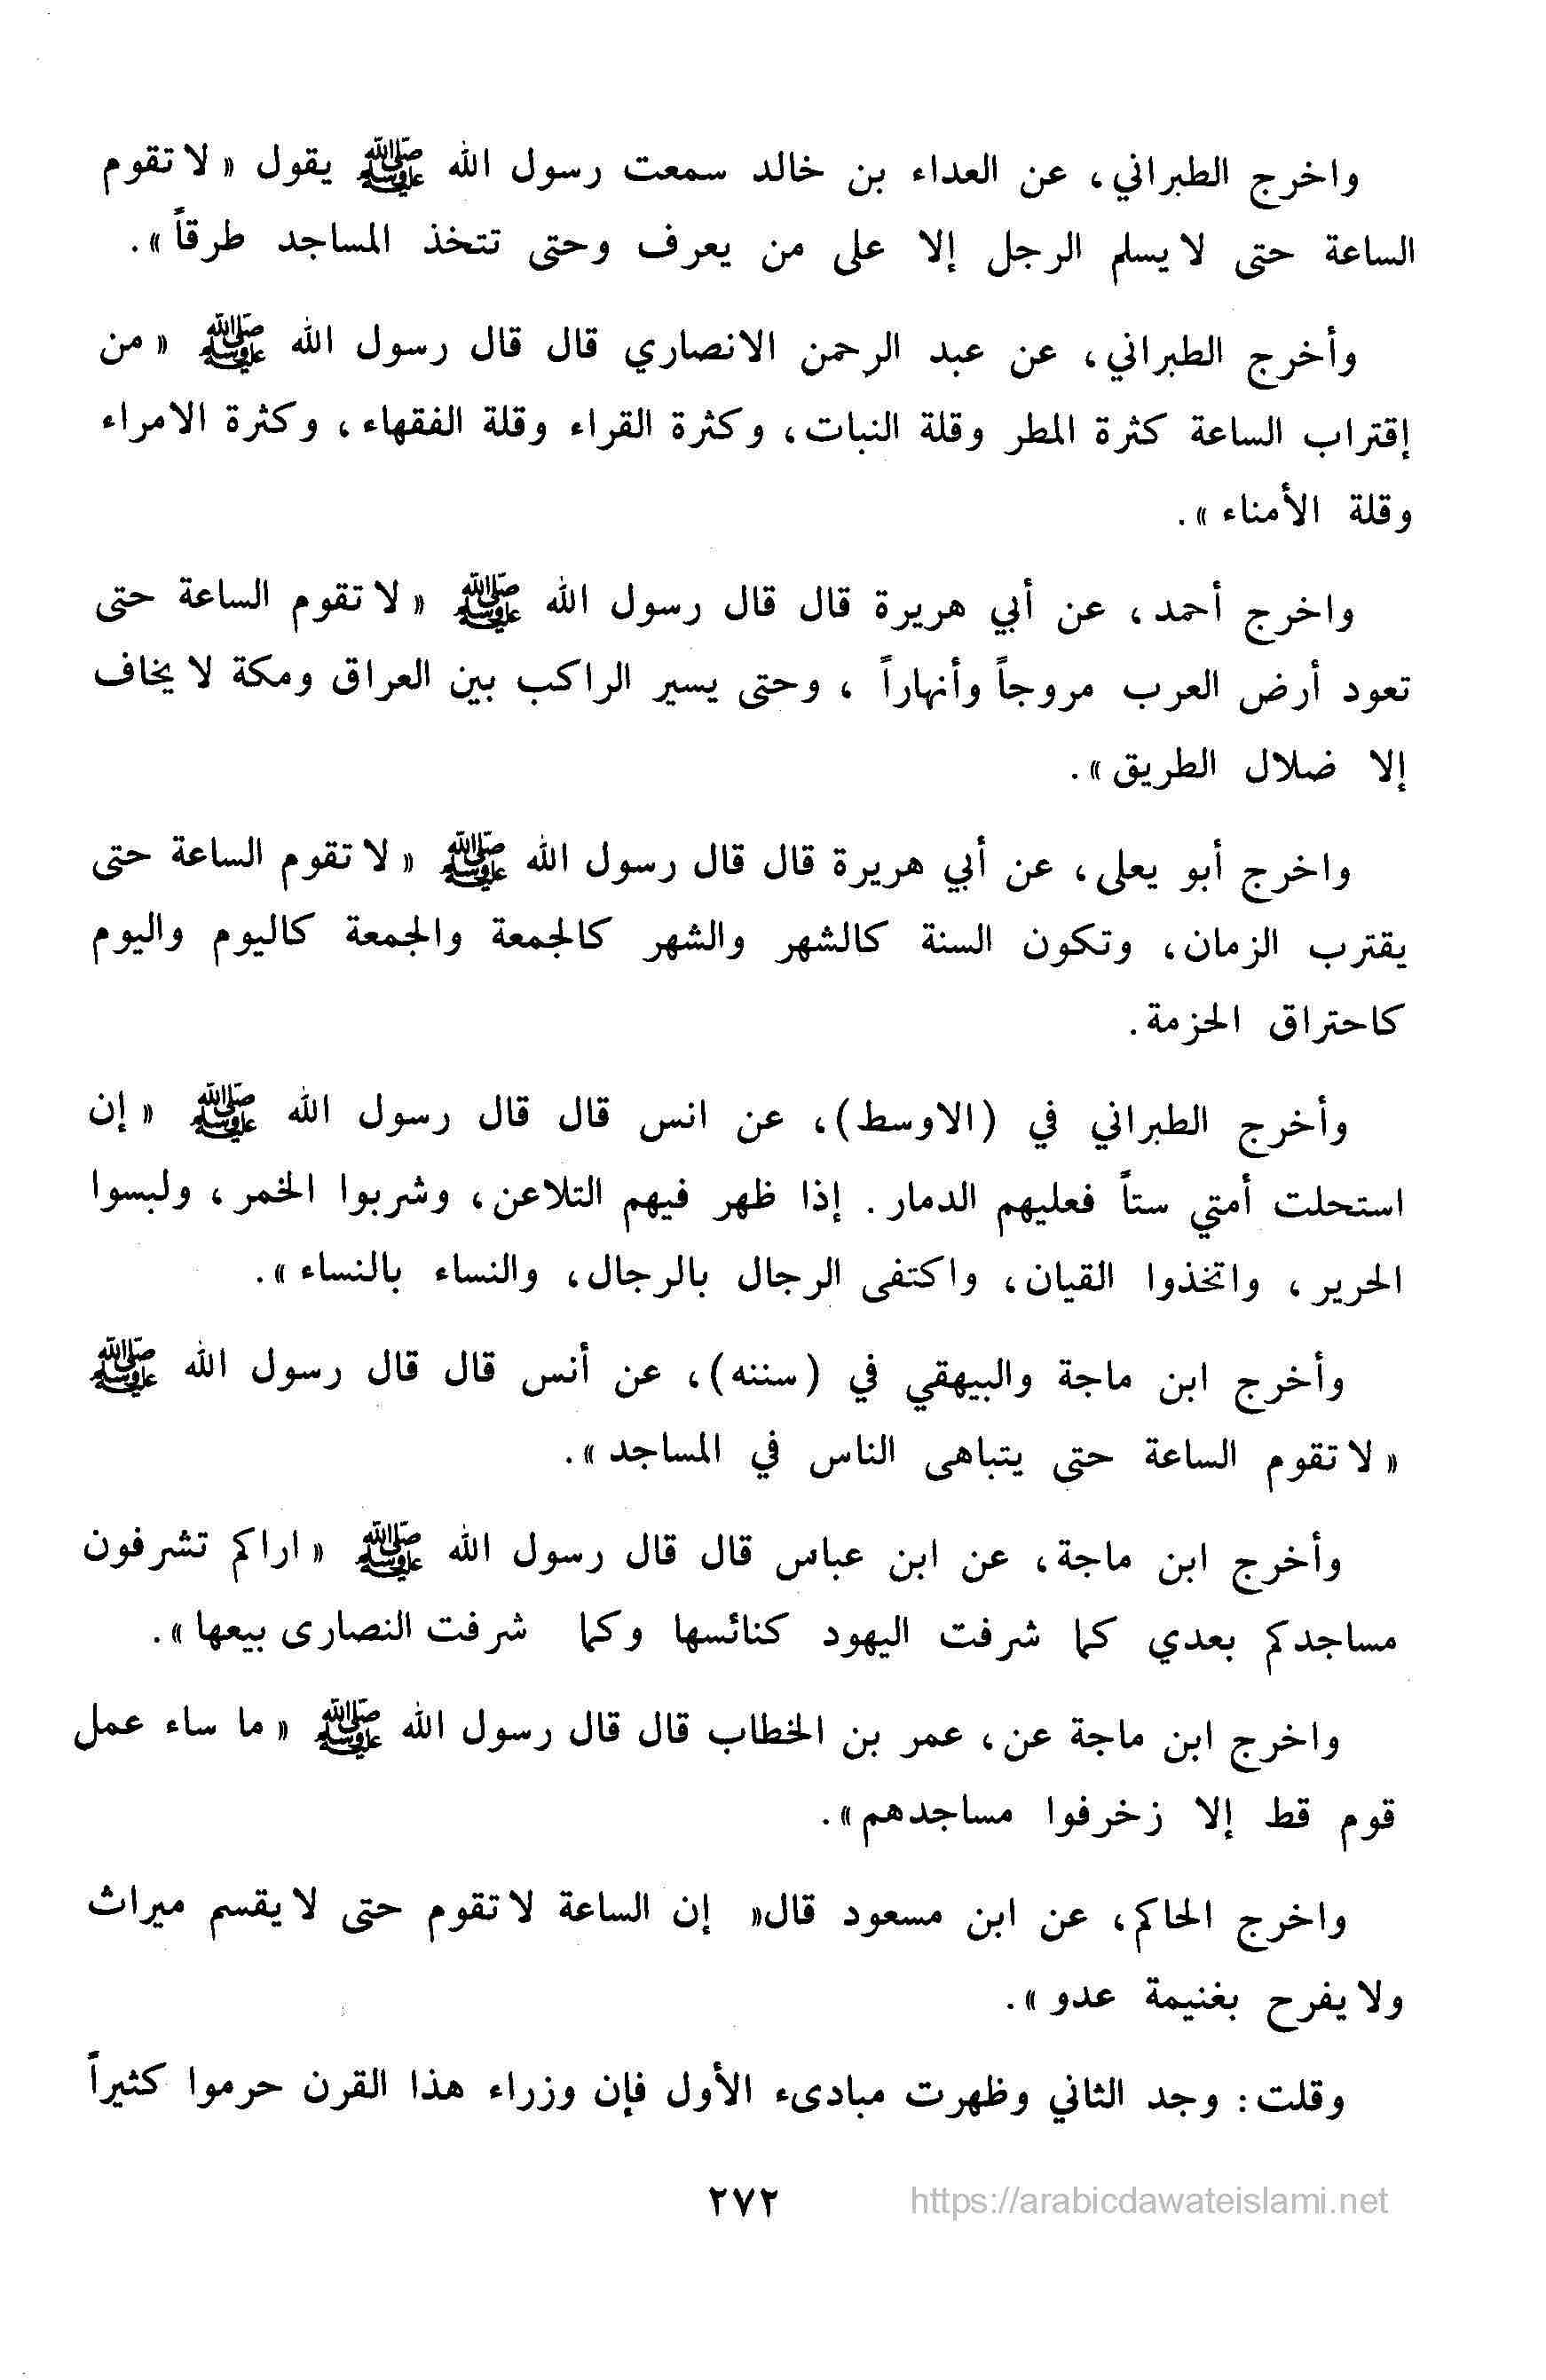 واخرج الطبراني، عن العداء بن خالد سمعت رسول الله ﷺ يقول « لا تقوم
الساعة حتى لا يسلم الرجل إلا على من يعرف وحتى تتخذ المساجد طرقاً ».
وأخرج الطبراني، عن عبد الرحمن الانصاري قال قال رسول الله ﷺ « من
إقتراب الساعة كثرة المطر وقلة النبات، وكثرة القراء وقلة الفقهاء، وكثرة الامراء
وقلة الأمناء ».
واخرج أحمد، عن أبي هريرة قال قال رسول الله ﷺ « لا تقوم الساعة حتى
تعود أرض العرب مروجاً وأنهاراً ، وحتى يسير الراكب بين العراق ومكة لا يخاف
إلا ضلال الطريق ».
واخرج أبو يعلى، عن أبي هريرة قال قال رسول الله ﷺ « لا تقوم الساعة حتى
يقترب الزمان، وتكون السنة كالشهر والشهر كالجمعة والجمعة كاليوم واليوم
كاحتراق الحزمة.
وأخرج الطبراني في (الاوسط)، عن انس قال قال رسول الله ﷺ « إن
استحلت أمتي ستاً فعليهم الدمار. إذا ظهر فيهم التلاعن، وشربوا الخمر، ولبسوا
الحرير، واتخذوا القيان، واكتفى الرجال بالرجال، والنساء بالنساء ».
وأخرج ابن ماجة والبيهقي في (سننه)، عن أنس قال قال رسول الله ﷺ
« لا تقوم الساعة حتى يتباهى الناس في المساجد ».
وأخرج ابن ماجة، عن ابن عباس قال قال رسول الله ﷺ « اراكم تشرفون
مساجدكم بعدي كما شرفت اليهود كنائسها وكما شرفت النصارى بيعها ».
واخرج ابن ماجة عن، عمر بن الخطاب قال قال رسول الله ﷺ « ما ساء عمل
قوم قط إلا زخرفوا مساجدهم ».
واخرج الحاكم، عن ابن مسعود قال« إن الساعة لا تقوم حتى لا يقسم ميراث
ولا يفرح بغنيمة عدو ».
وقلت: وجد الثاني وظهرت مبادىء الأول فإن وزراء هذا القرن حرموا كثيراً
٢٧٢
https://arabicdawateislami.net